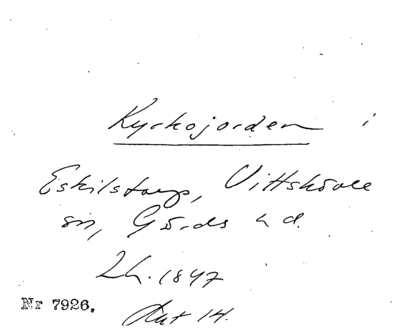 Kyrkojorden i
Eskilstorp, Vittskövle
sn, Gärds hd.
Lh. 1847
Akt 14.
Nr 7926.